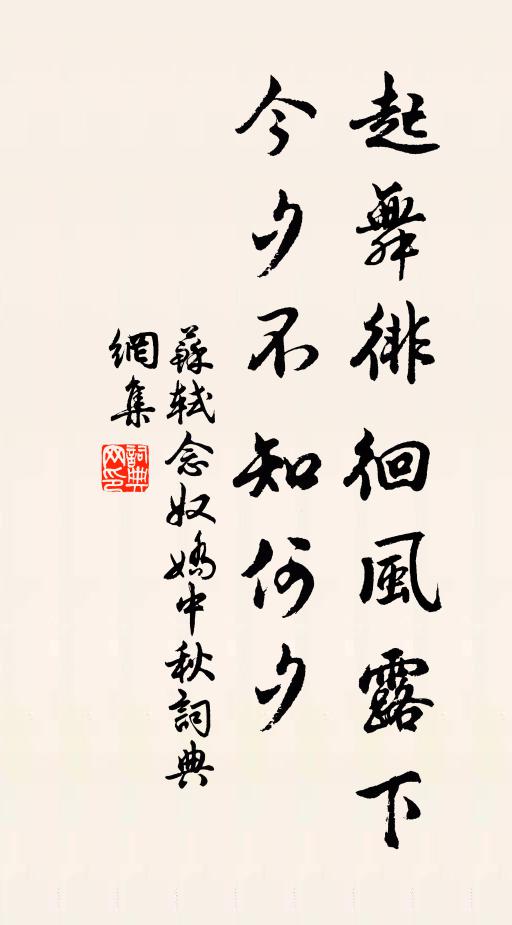 起舞徘徊風露下
今夕不知何夕
蘇軾念奴嬌中秋詞典
網集
詞典
网印